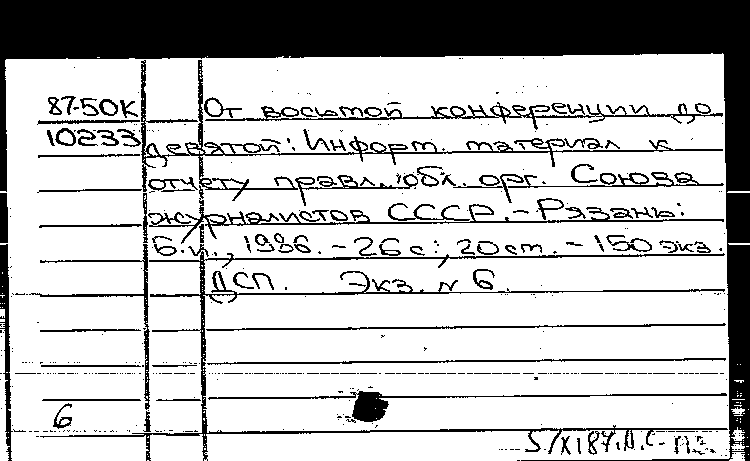 87-50К От восьмой конференции до
10233 девятой: Информ. материал к
отчету правл. обл. орг. Союза
журналистов СССР. - Рязань:
Б.и., 1986. - 26 с.; 20 ст. - 150 экз.
ДСП. Экз. № 6.
6
5/XI87.Д.С.-